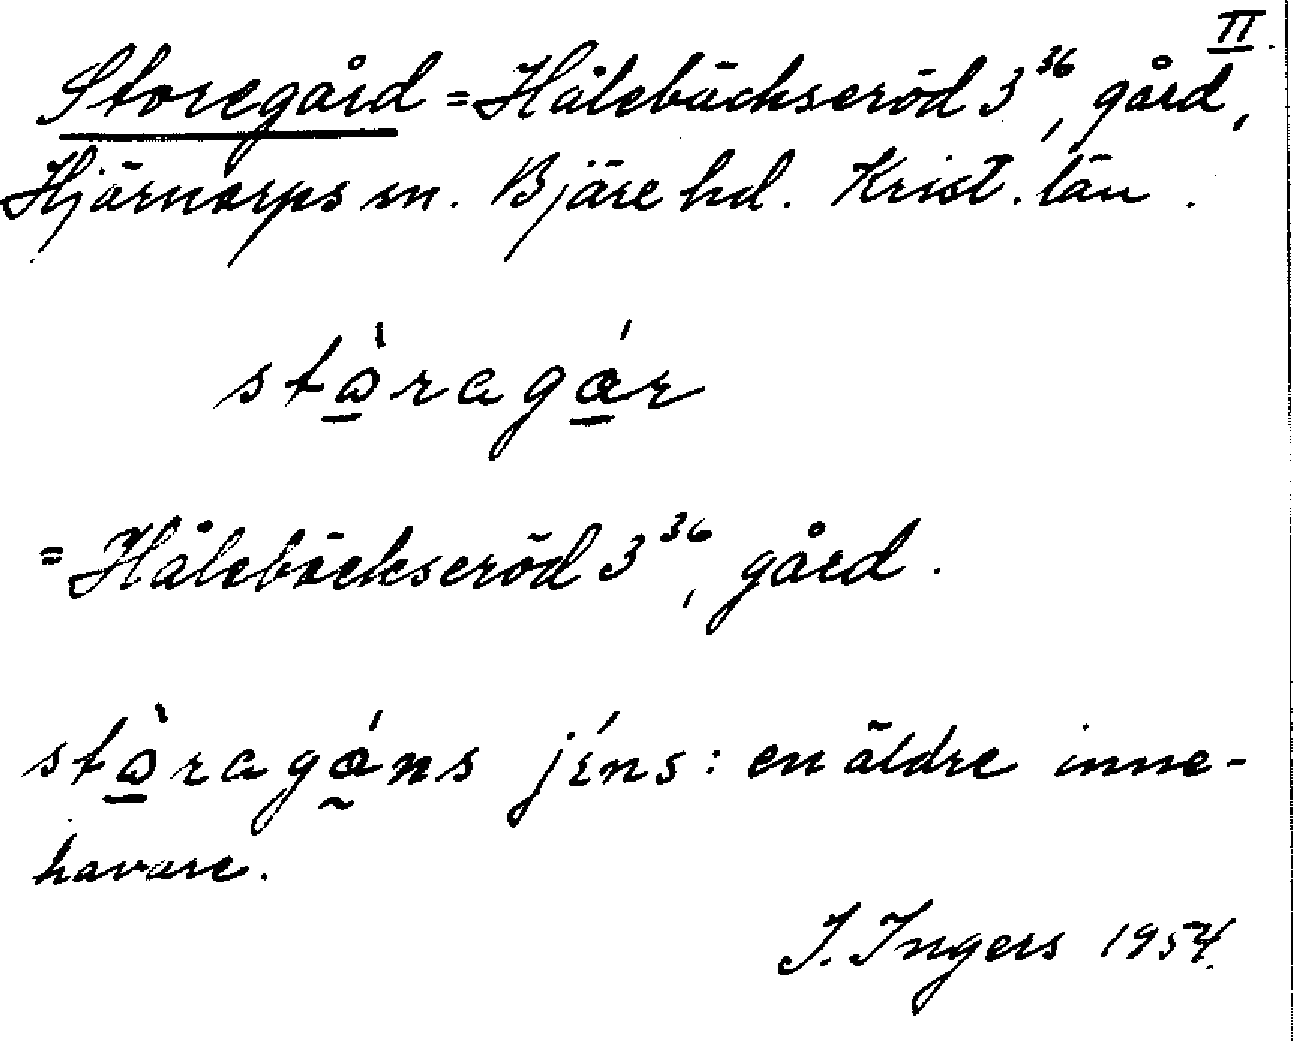 II.
Storegård = Hålebäckseröd 3³⁶, gård,
Hjärnarps sn. Bjäre hd. Krist. län.
stò̠ragá̠r
= Hålebäckseröd 3³⁶, gård.
stò̠ragá̰ns jéns: en äldre inne-
havare.
I. Ingers 1954.